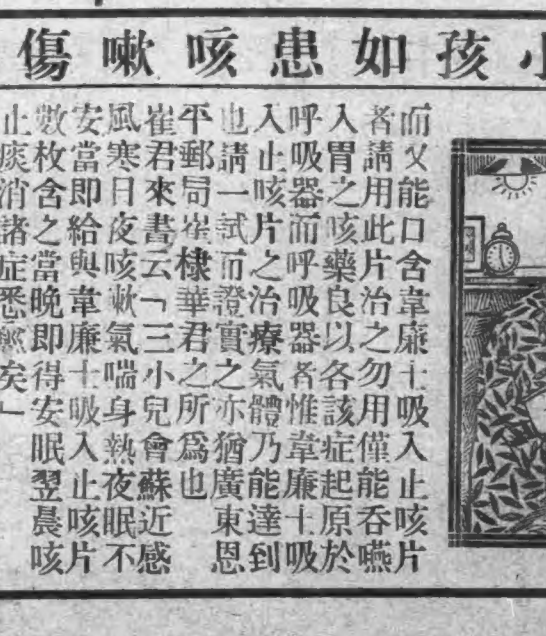 小孩如患咳嗽傷
而又能口含韋廉士吸入止咳片
者請用此片治之勿用僅能吞嚥
入胃之咳藥良以各該症起原於
呼吸器而呼吸器者惟韋廉士吸
入止咳片之治療氣體乃能達到
也請一試而證實之亦猶廣東恩
平郵局崔棣華君之所爲也
崔君來書云「三小兒會蘇近感
風寒日夜咳嗽氣喘身熱夜眠不
安當即給與韋廉士吸入止咳片
數枚含之當晚即得安眠翌晨咳
止痰消諸症悉無矣」